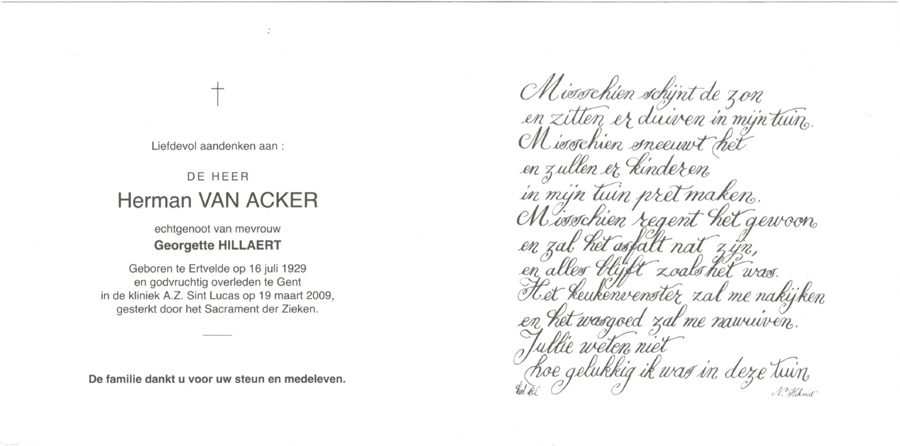 Liefdevol aandenken aan :
DE HEER
Herman VAN ACKER
echtgenoot van mevrouw
Georgette HILLAERT
Geboren te Ertvelde op 16 juli 1929
en godvruchtig overleden te Gent
in de kliniek A.Z. Sint Lucas op 19 maart 2009,
gesterkt door het Sacrament der Zieken.
De familie dankt u voor uw steun en medeleven.
Misschien schijnt de zon
en zitten er duiven in mijn tuin.
Misschien sneeuwt het
en zullen er kinderen
in mijn tuin pret maken.
Misschien regent het gewoon
en zal het asfalt nat zijn,
en alles blijft zoals het was.
Het keukenvenster zal me nakijken
en het wasgoed zal me nawuiven.
Jullie weten niet
hoe gelukkig ik was in deze tuin
N. Hikmet